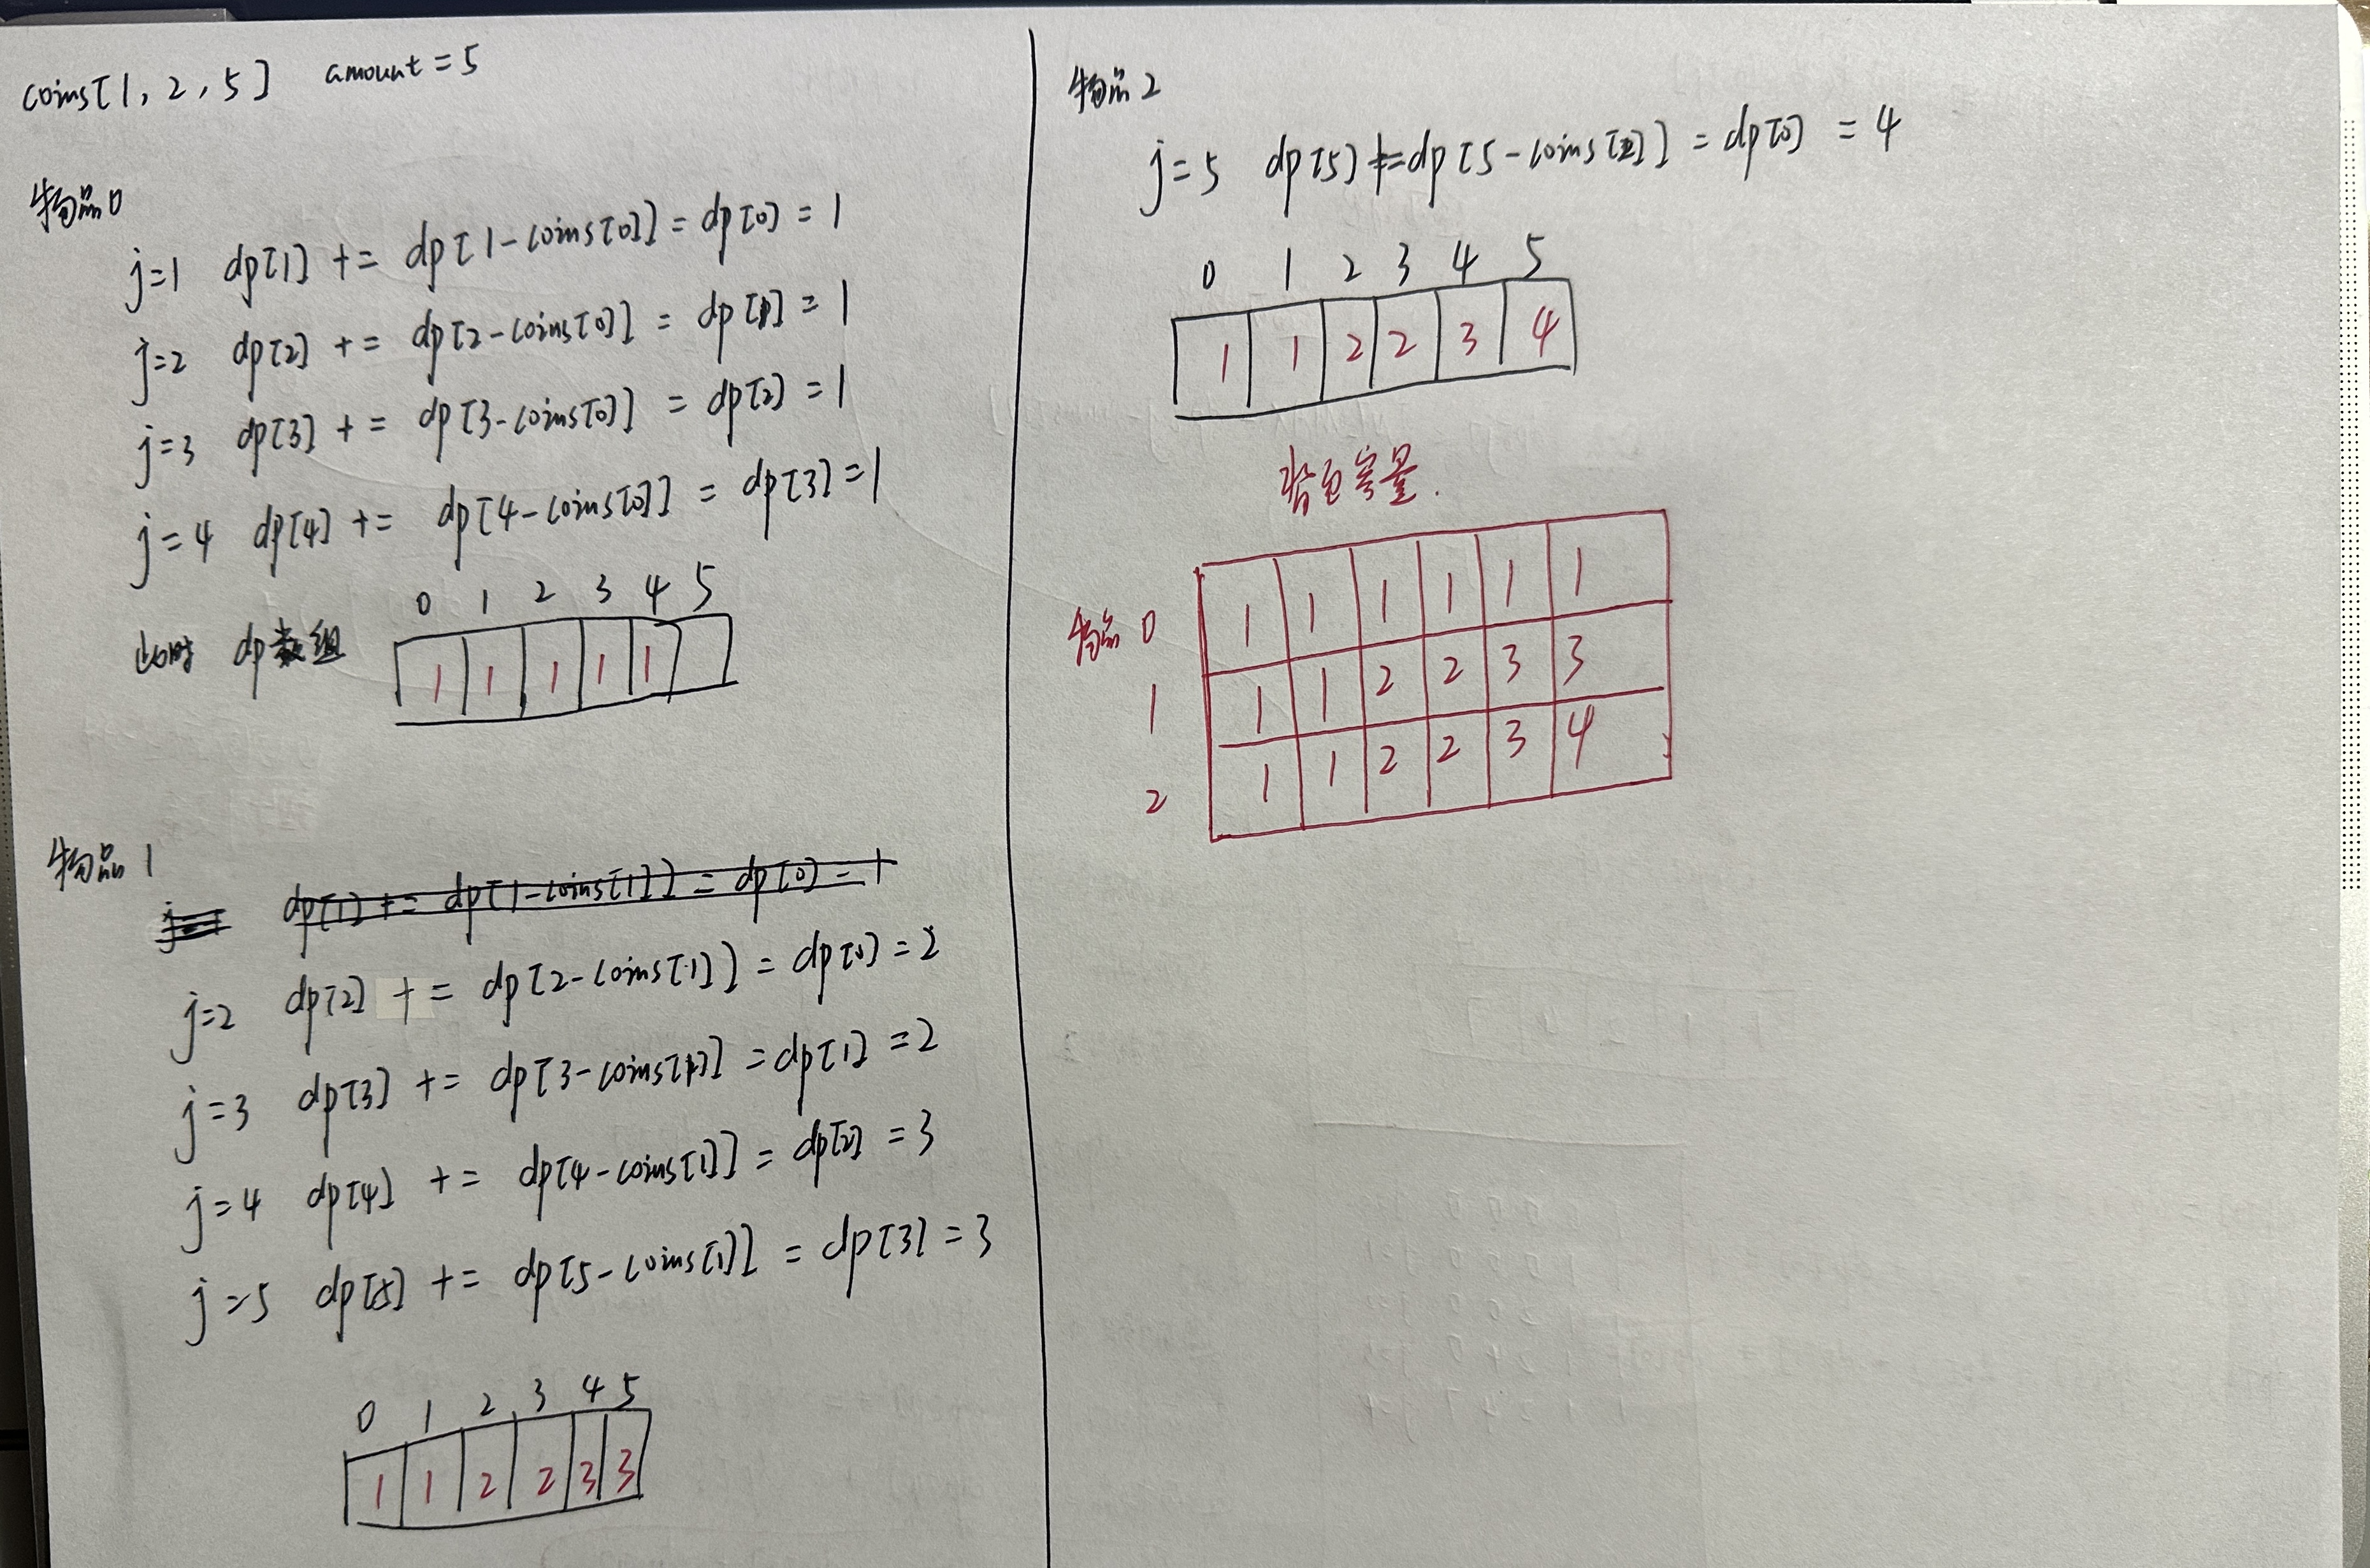 coins[1, 2, 5]  amount = 5
物品0
j=1 dp[1] += dp[1-coins[0]] = dp[0] = 1
j=2 dp[2] += dp[2-coins[0]] = dp[1] = 1
j=3 dp[3] += dp[3-coins[0]] = dp[2] = 1
j=4 dp[4] += dp[4-coins[0]] = dp[3] = 1
0 1 2 3 4 5
此时 dp数组 1 1 1 1 1
物品1
dp[1] += dp[1-coins[1]] = dp[0] = 1
j=2 dp[2] += dp[2-coins[1]] = dp[0] = 2
j=3 dp[3] += dp[3-coins[1]] = dp[1] = 2
j=4 dp[4] += dp[4-coins[1]] = dp[2] = 3
j=5 dp[5] += dp[5-coins[1]] = dp[3] = 3
0 1 2 3 4 5
1 1 2 2 3 3
物品2
j=5 dp[5] += dp[5-coins[2]] = dp[0] = 4
0 1 2 3 4 5
1 1 2 2 3 4
背包容量.
物品 0 1 1 1 1 1 1
1 1 1 2 2 3 3
2 1 1 2 2 3 4